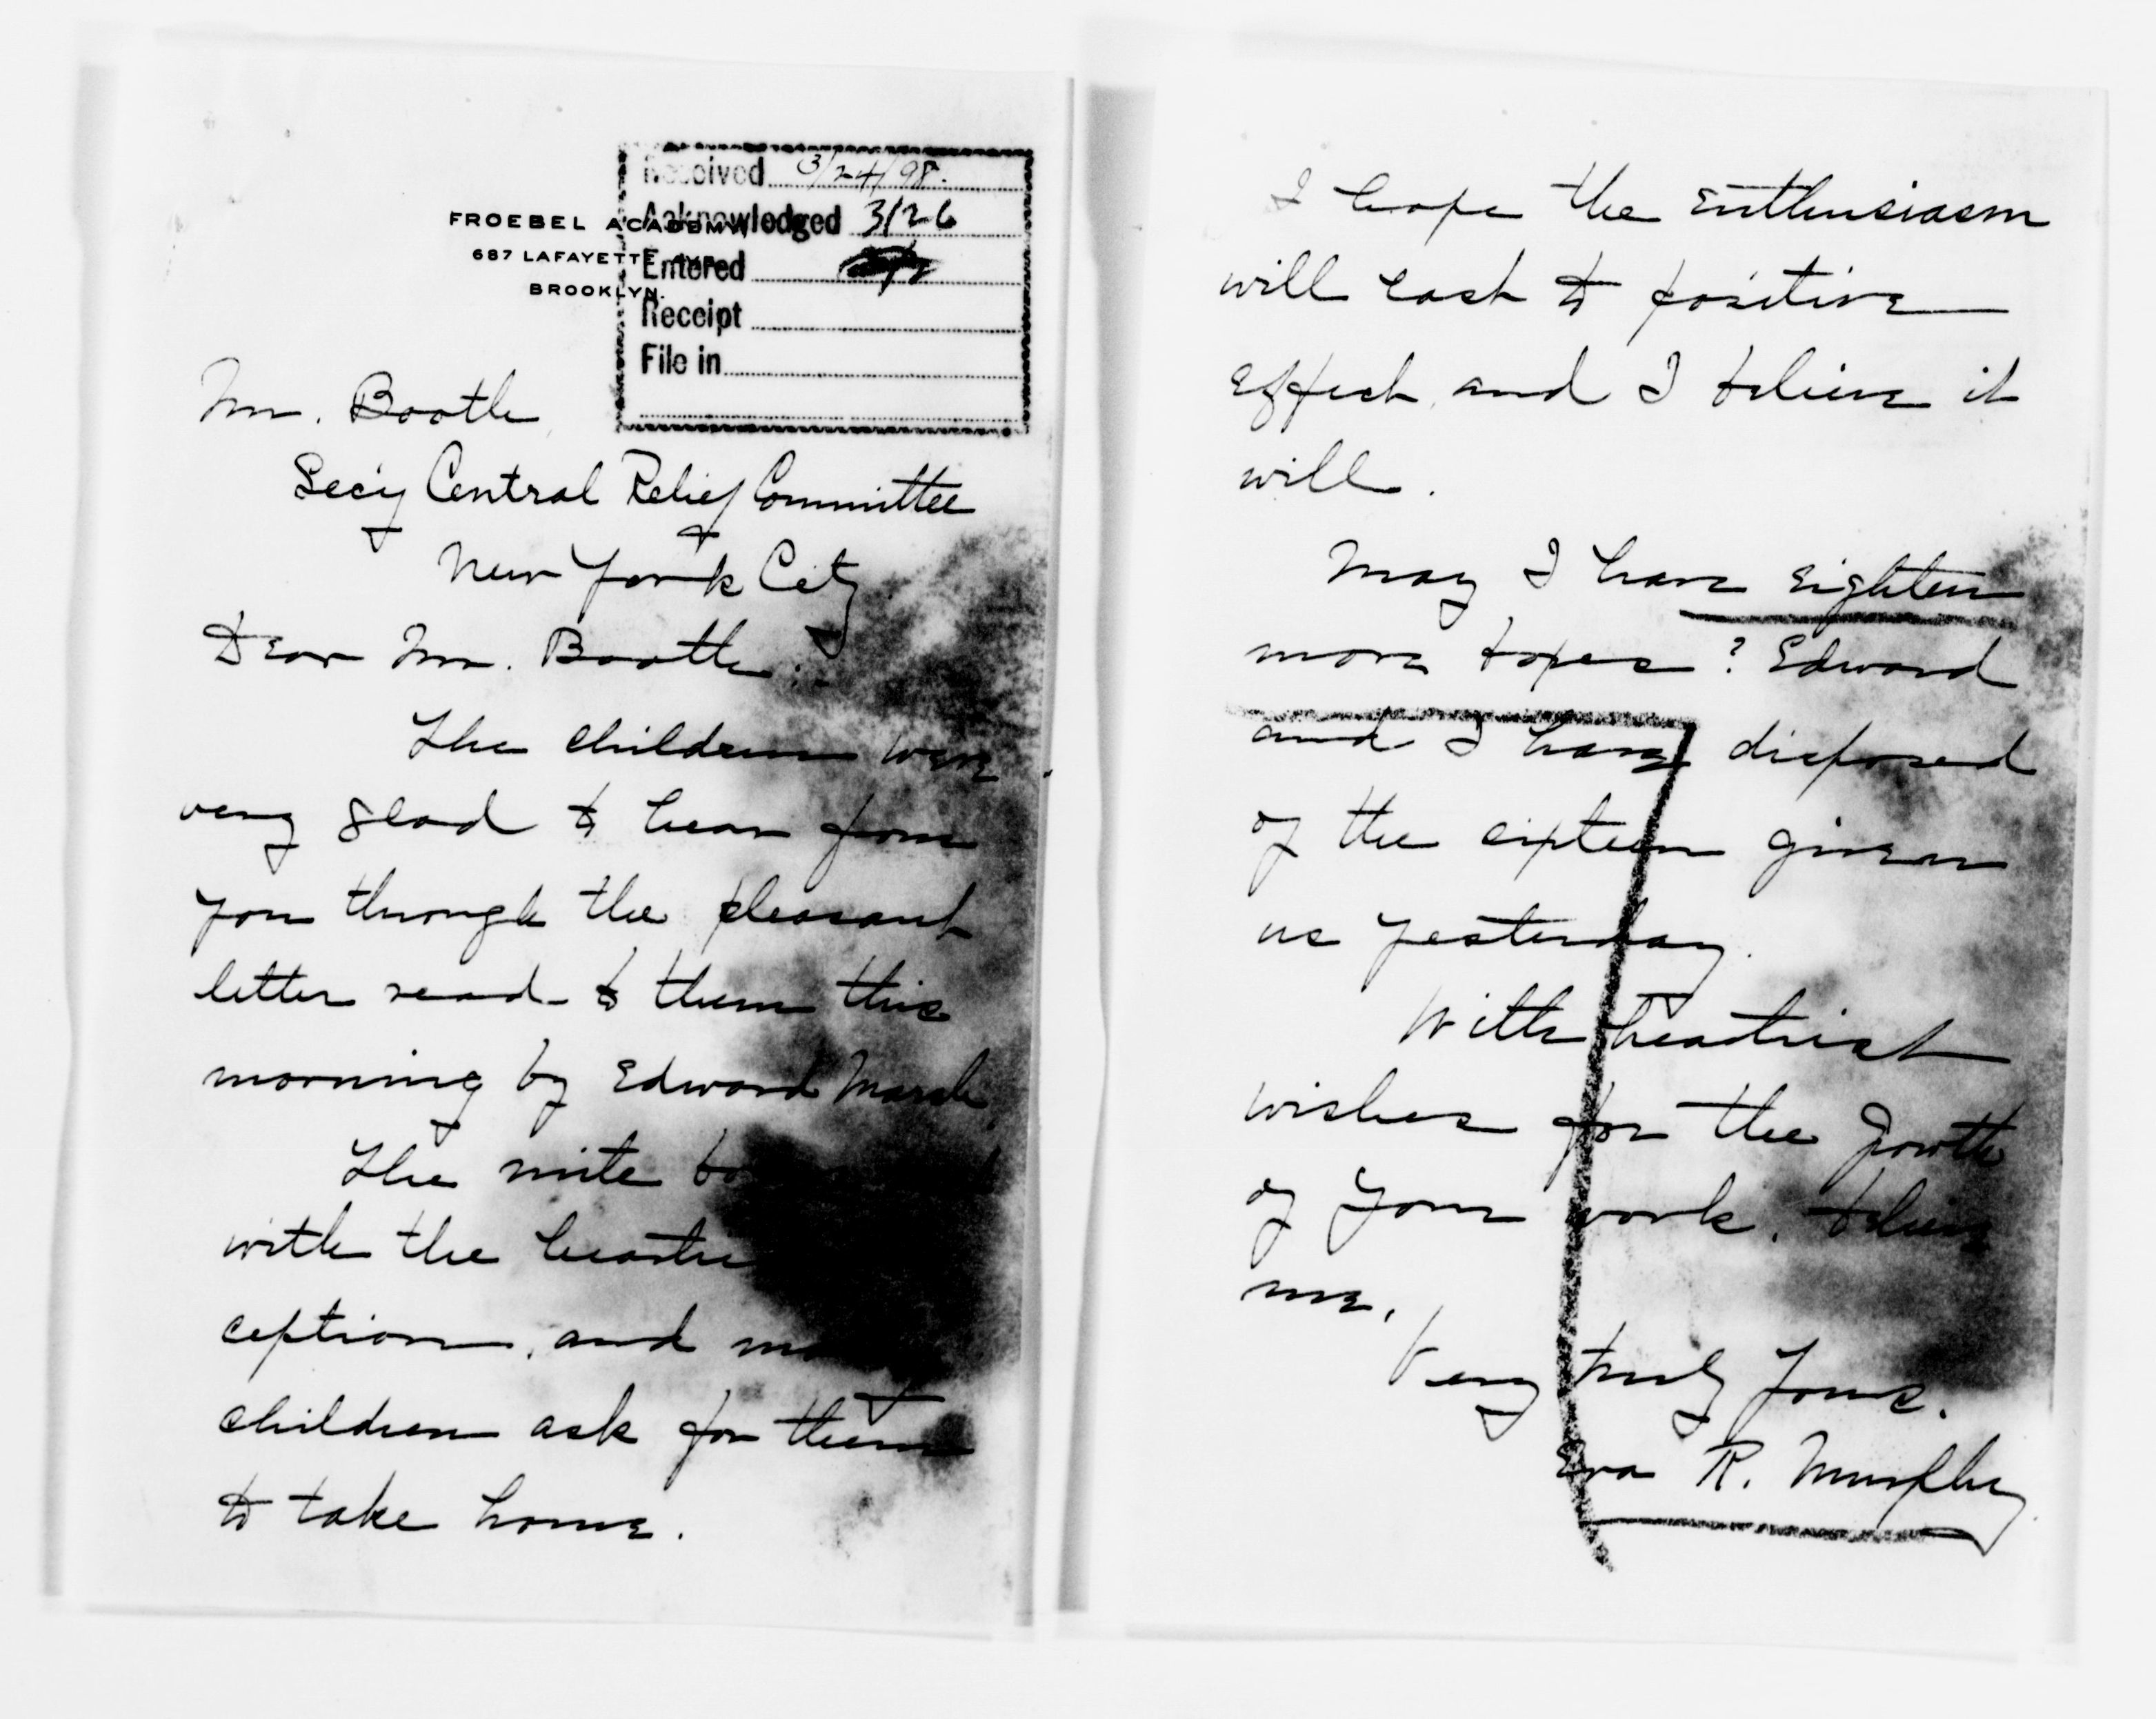 FROEBEL ACADEMY
687 LAFAYETTE AVE.
BROOKLYN.
Received 3/24/98.
Acknowledged 3/26
Entered
Receipt
File in
Mr. Booth
Sec'y Central Relief Committee
New York City
Dear Mr. Booth:
The children were
very glad to hear from
you through the pleasant
letter read to them this
morning by Edward Marsh
The mite bo
with the
ception, and
children ask for them
to take home.
I hope the enthusiasm
will last to positive
effect, and I believe it
will.
May I have eighteen
more boxes? Edward
and I have disposed
of the given
us yesterday.
With heartiest
wishes for the growth
of your work, believe
me,
Very truly yours.
Eva R. Murphy